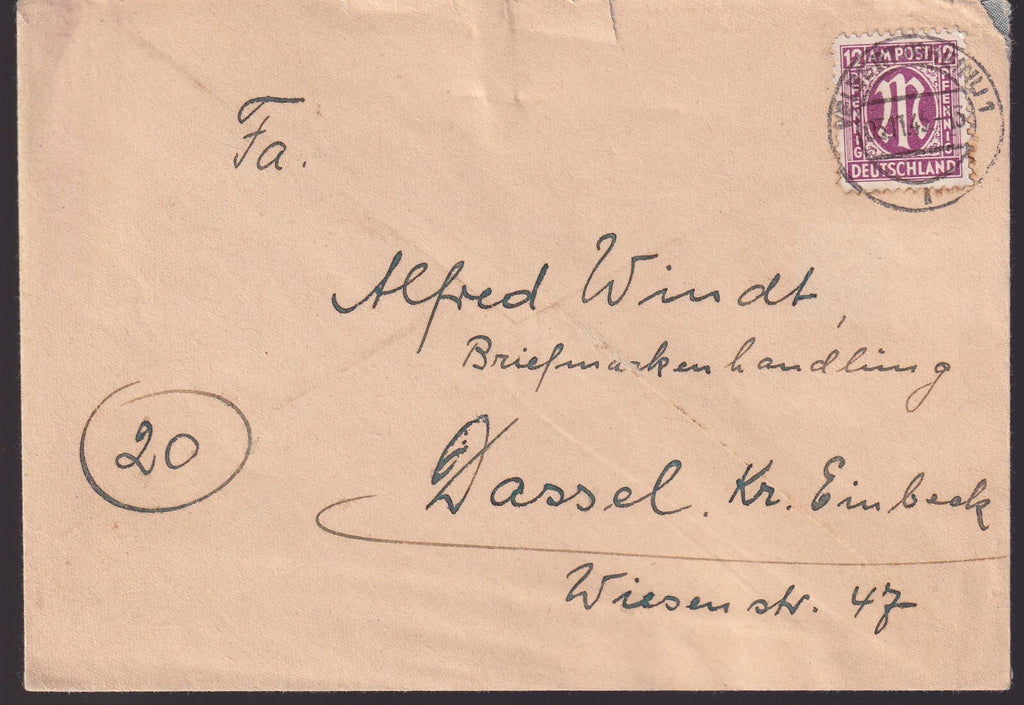 12 AM POST 12
PFENNIG
DEUTSCHLAND
Fa.
Alfred Windt,
Briefmarkenhandlung
20
Dassel. Kr. Einbeck
Wiesenstr. 47